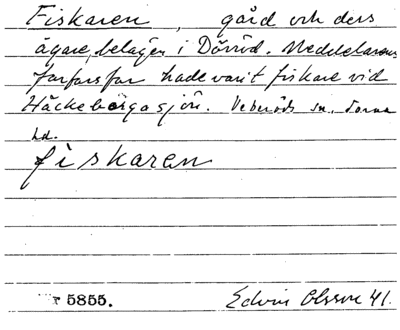 Fiskaren, gård och ders
ägare, belägen i Dörröd. Meddelarens
farfarsfar hade varit fiskare vid
Häckebergasjön. Veberöds sn. Torna
hd.
fiskaren
5855. Edvin Olsson 41.